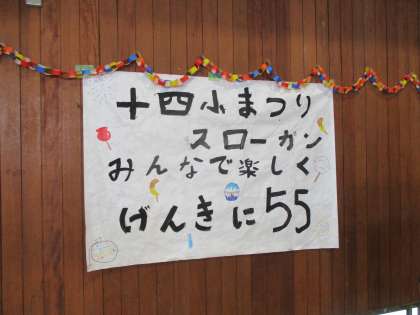 十四小まつり
スローガン
みんなで楽しく
げんきに55